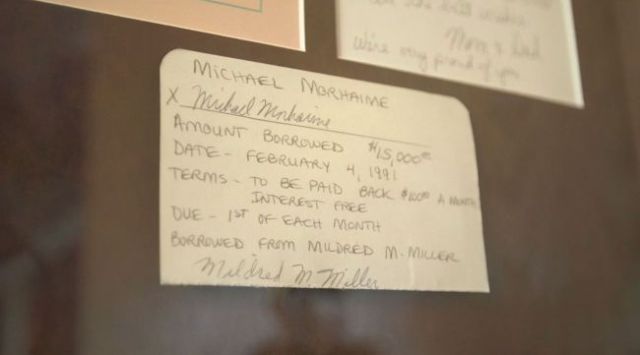 and the best wishes
Mom & Dad
We're very proud of you
MICHAEL MORHAIME
X Michael Morhaime
AMOUNT BORROWED $15,000⁰⁰
DATE - FEBRUARY 4, 1991
TERMS - TO BE PAID BACK $100⁰⁰ A MONTH
INTEREST FREE
DUE - 1ST OF EACH MONTH
BORROWED FROM MILDRED M. MILLER
Mildred M. Miller